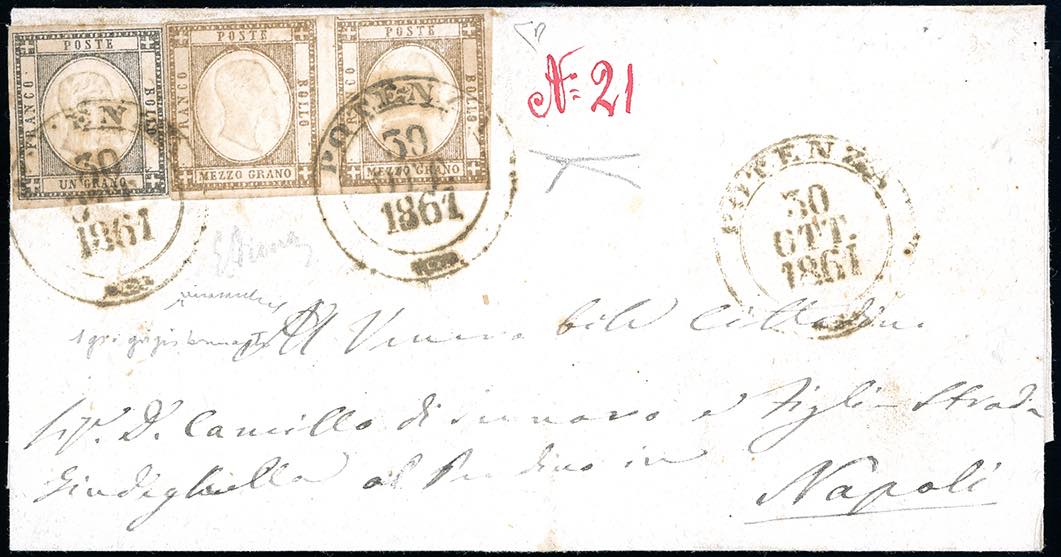 POSTE
FRANCO BOLLO
UN GRANO
POSTE
FRANCO BOLLO
MEZZO GRANO
POSTE
FRANCO BOLLO
MEZZO GRANO
EN
30
1861
POTENZ
30
1861
Nº 21
POTENZA
30
OTT.
1861
Al Venera bile Cittadino
Sigr. D. Camillo di Gennaro e Figli Strada
Giudeghella al Pendino in
Napoli